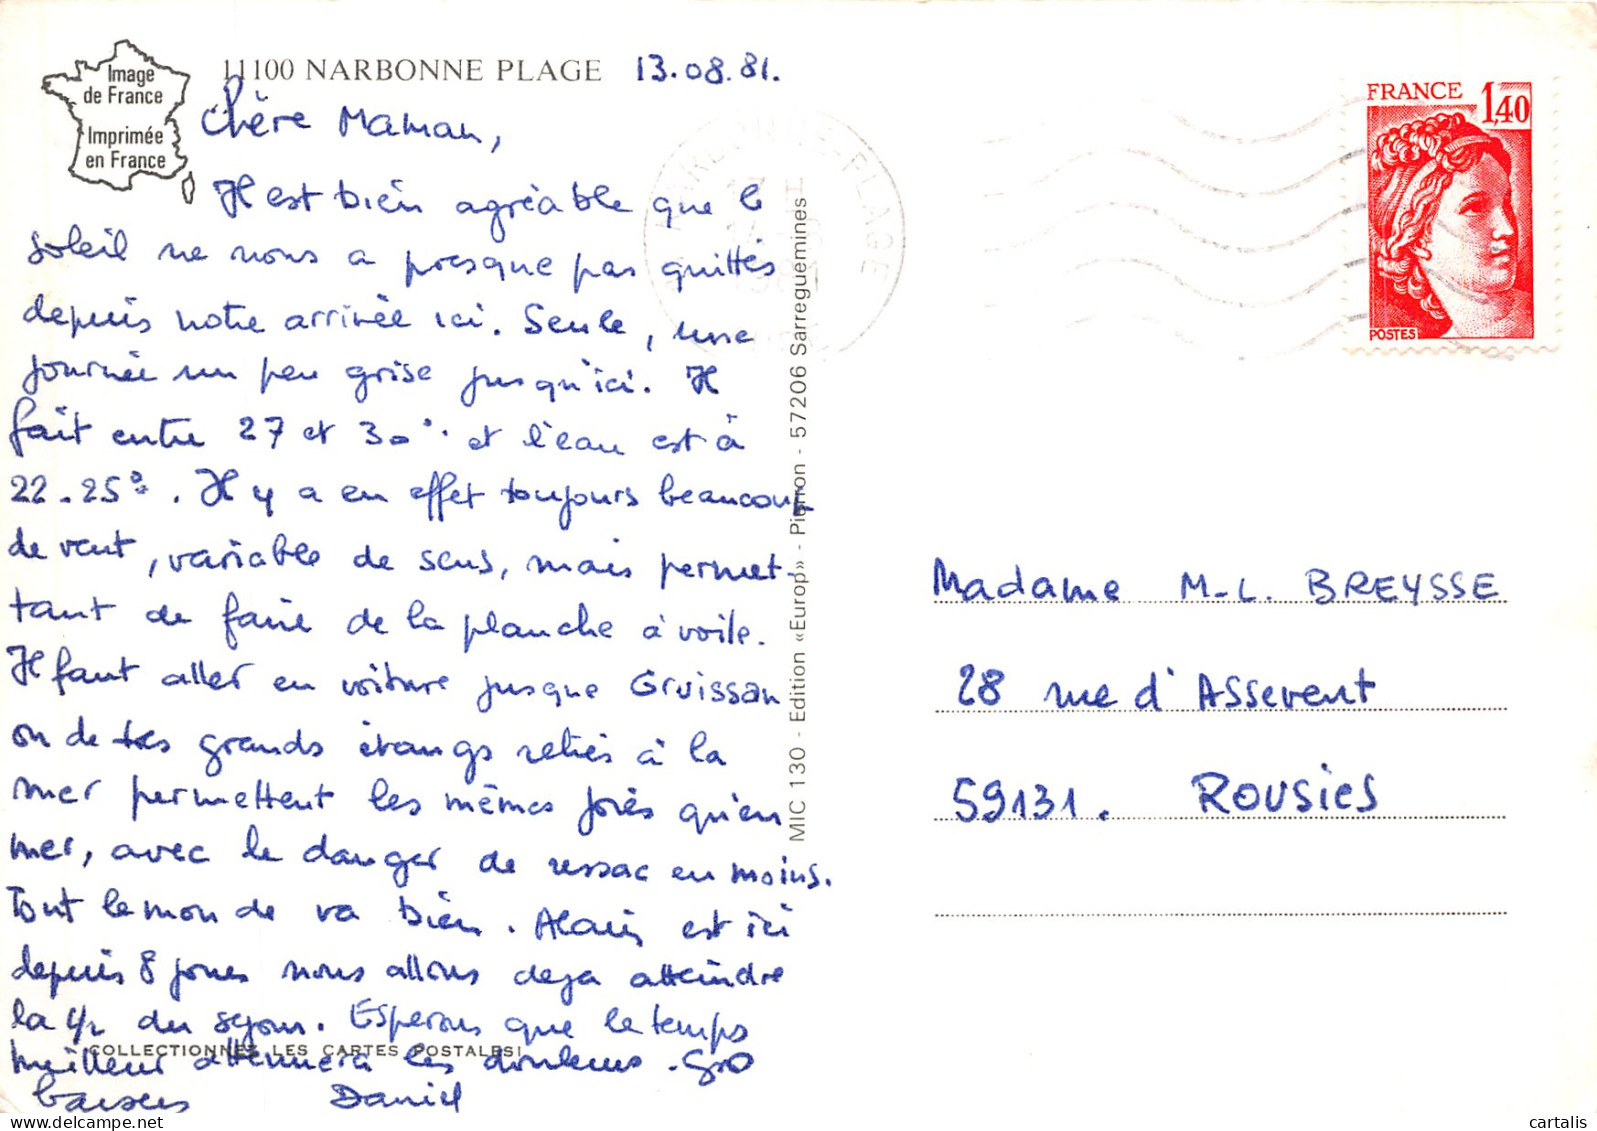 Image
de France
Imprimée
en France
11100 NARBONNE PLAGE 13.08.81.
Chère Maman,
Il est bien agréable que le
soleil ne nous a presque pas quittés
depuis notre arrivée ici. Seule, une
journée un peu grise jusqu'ici. Il
fait entre 27 et 30°. et l'eau est à
22-25°. Il y a en effet toujours beaucoup
de vent, variable de sens, mais permet-
tant de faire de la planche à voile.
Il faut aller en voiture jusque Gruissan
où de très grands étangs reliés à la
mer permettent les mêmes joies qu'en
mer, avec le danger de ressac en moins.
Tout le monde va bien. Alain est ici
depuis 8 jours nous allons deja atteindre
la 1/2 du séjour. Espérons que le temps
meilleur atténuera les douleurs. Gros
baisers Daniel
COLLECTIONNEZ LES CARTES POSTALES!
MIC 130 - Edition «Europ» - Pierron - 57206 Sarreguemines
NARBONNE-PLAGE
FRANCE 1,40
POSTES
Madame M-L. BREYSSE
28 rue d'Assevent
59131. ROUSIES
cartalis